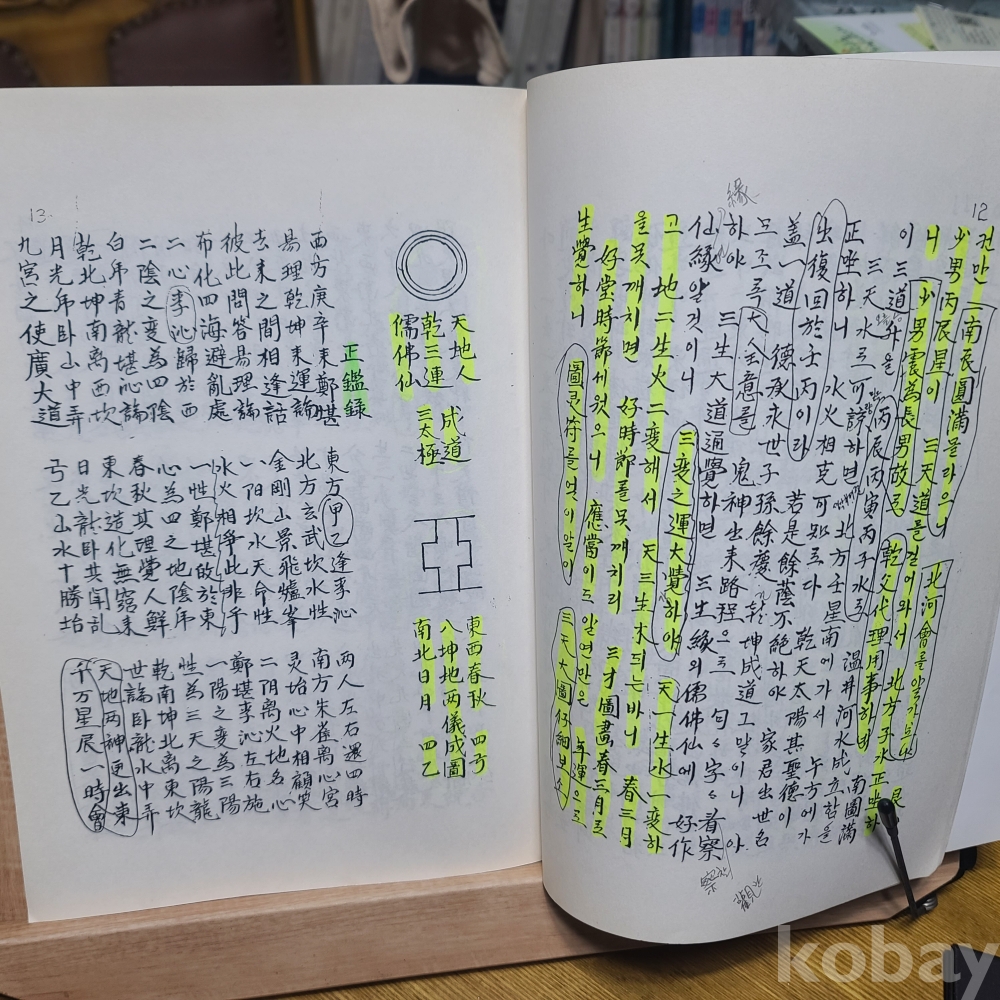 12
권만
南辰圓滿을라으니
少男丙辰星이 三天道를걸어와서 北方子水正坐하
니 少男震為長男故로 乾父代理用事하
이 三道升을 丙辰丙寅丙子水로 溫井河水成立함을
南圖滿
三天水르可謗하면 北方壬星南에가서 午方에가
正坐하니 水火相克可知로다 乾天太陽其聖德이
出復回於壬丙이라 若是餘蔭不絶하야 家君出世名
蓋一道 德承來世子孫餘慶 乾坤成道그말이니 아
모조록大全意를 鬼神出来路程으로 句々字々看察
하야 三生大道通覺하면 三生緣의儒佛仙에 好作
緣
仙緣알것이니 三變之運大覺하야 天一生水一變하
고 地二生火二變해서 天三生木되는바니 春三月
을못깨치면 好時節를못깨치리 三才圖畫春三月로
好堂時節세웟으니 應當이르알연만은 五運으로
生覺하니 圖灵符를엇이알이 三天大圖仔細보소
察
觀
13
天地人 成道
乾三連
儒佛仙 三太極
東西春秋 四弓
八坤地两儀成圖
南北日月 四乙
正鑑録
西方庚辛来鄭堪 東方甲乙逢李沁 两人左右還四時
易理乾坤来運論 北方玄武坎水性 南方朱雀离心宮
去来之間相逢話 金剛山景飛爐峯 灵坮心中相顧笑
彼此問答易理論 一阳坎水天命性 二阴离火地名心
布化四海避亂處 水火相爭此非乎 鄭堪李沁左右施
二心李沁歸於西 一性鄭堪啟於東 一陽之變為三陽
二陰之變為四陰 心為四之地陰帝 性為三天之陽龍
白帝青龍堪沁論 春秋其理覺人鮮 乾南坤北离東坎
乾北坤南离西坎 東坎造化無窮来 世論卧龍水中弄
月光帝卧山中弄 日光龍卧其聞乱 天地两神更出東
九宮之使廣大道 弓乙山水十勝坮 千万星辰一時會
kobay